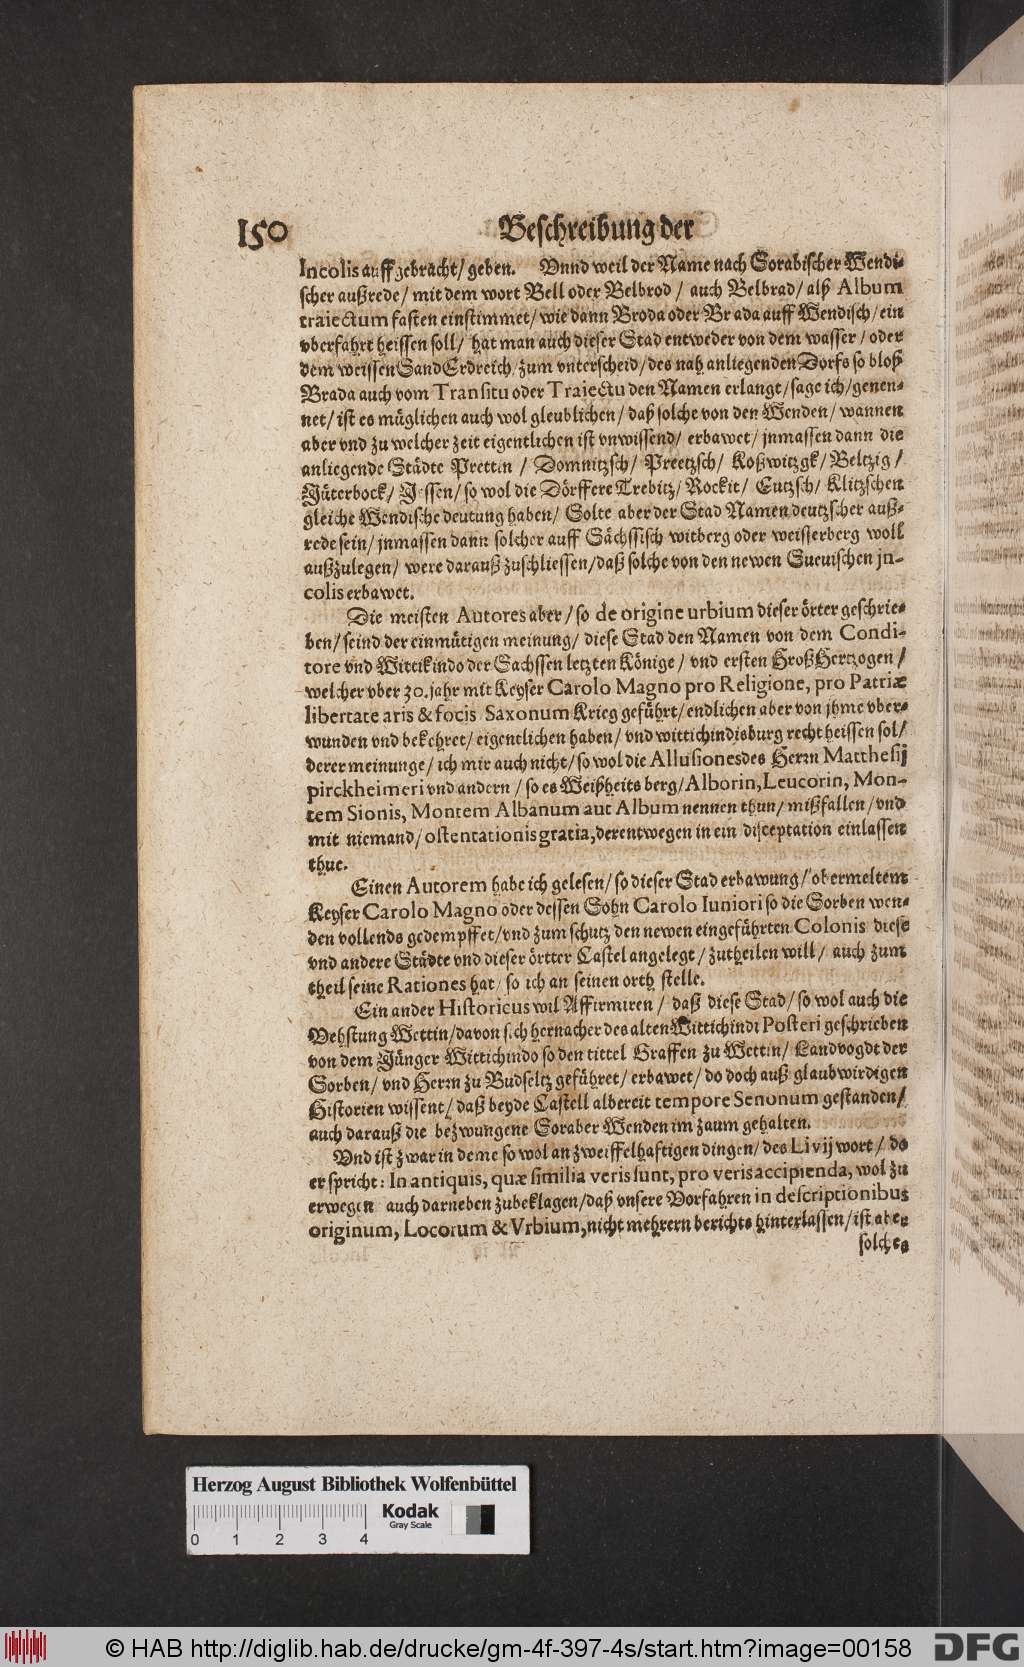 150
Beschreibung der
Incolis auffgebracht/ geben. Vnnd weil der Name nach Sorabischer Wendi-
scher außrede/ mit dem wort Bell oder Belbrod / auch Belbrad/ alß Album
traiectum fasten einstimmet/ wie dann Broda oder Brada auff Wendisch/ ein
vberfahrt heissen soll/ hat man auch dieser Stad entweder von dem wasser / oder
dem weissen Sand Erdreich/ zum vnterscheid/ des nah anliegenden Dorfs so bloß
Brada auch vom Transitu oder Traiectu den Namen erlangt/ sage ich/ genen-
net/ ist es müglichen auch wol gleublichen/ daß solche von den Wenden/ wannen
aber vnd zu welcher zeit eigentlichen ist vnwissend/ erbawet/ jnmassen dann die
anliegende Städte Prettin / Domnitzsch/ Preetzsch/ Koßwitzgk/ Beltzig /
Jüterbock/ Jessen/ so wol die Dörffere Trebitz/ Rockit/ Eutzsch/ Klitzschen
gleiche Wendische deutung haben/ Solte aber der Stad Namen deutzscher auß-
rede sein/ jnmassen dann solcher auff Sächssisch witberg oder weisserberg woll
außzulegen/ were darauß zuschliessen/ daß solche von den newen Sueuischen jn-
colis erbawet.
Die meisten Autores aber/ so de origine urbium dieser örter geschrie-
ben/ seind der einmütigen meinung/ diese Stad den Namen von dem Condi-
tore vnd Wittikindo der Sachssen letzten Könige / vnd ersten GroßHertzogen /
welcher vber 30. jahr mit Keyser Carolo Magno pro Religione, pro Patriæ
libertate aris & focis Saxonum Krieg geführt/ endlichen aber von jhme vber-
wunden vnd bekehret/ eigentlichen haben/ vnd wittichindisburg recht heissen sol/
derer meinunge/ ich mir auch nicht/ so wol die Allusiones des Herrn Matthesij
pirckheimeri vnd andern / so es Weißheits berg/ Alborin, Leucorin, Mon-
tem Sionis, Montem Albanum aut Album nennen thun/ mißfallen/ vnd
mit niemand/ ostentationis gratia, derentwegen in ein disceptation einlassen
thue.
Einen Autorem habe ich gelesen/ so dieser Stad erbawung/ obermeltem
Keyser Carolo Magno oder dessen Sohn Carolo Iuniori so die Sorben wen-
den vollends gedempffet/ vnd zum schutz den newen eingeführten Colonis diese
vnd andere Städte vnd dieser örtter Castel angelegt/ zutheilen will/ auch zum
theil seine Rationes hat/ so ich an seinen orth stelle.
Ein ander Historicus wil Affirmiren / daß diese Stad/ so wol auch die
Vehstung Wettin/ davon sich hernacher des alten Wittichindi Posteri geschrieben
von dem Jünger Wittichindo so den tittel Graffen zu Wettin/ Landvogdt der
Sorben/ vnd Herrn zu Budseltz geführet/ erbawet/ do doch auß glaubwirdigen
Historien wissent/ daß beyde Castell albereit tempore Senonum gestanden/
auch darauß die bezwungene Soraber Wenden im zaum gehalten.
Vnd ist zwar in deme so wol an zweiffelhaftigen dingen/ des Livij wort/ do
er spricht: In antiquis, quæ similia veris sunt, pro veris accipienda, wol zu
erwegen auch darneben zubeklagen/ daß vnsere Vorfahren in descriptionibus
originum, Locorum & Vrbium, nicht mehrern berichts hinterlassen/ ist aber
solches
Herzog August Bibliothek Wolfenbüttel
Kodak
Gray Scale
0 1 2 3 4
© HAB http://diglib.hab.de/drucke/gm-4f-397-4s/start.htm?image=00158
DFG